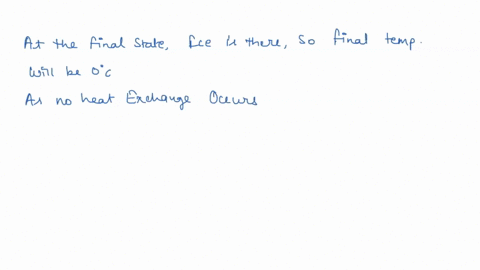 At the final state, Ice is there, so final temp.
will be 0°c
As no heat Exchange Occurs